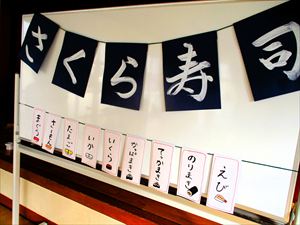 さくら寿司
まぐろ
さーもん
たまご
いか
いくら
かっぱまき
てっかまき
のりまき
えび